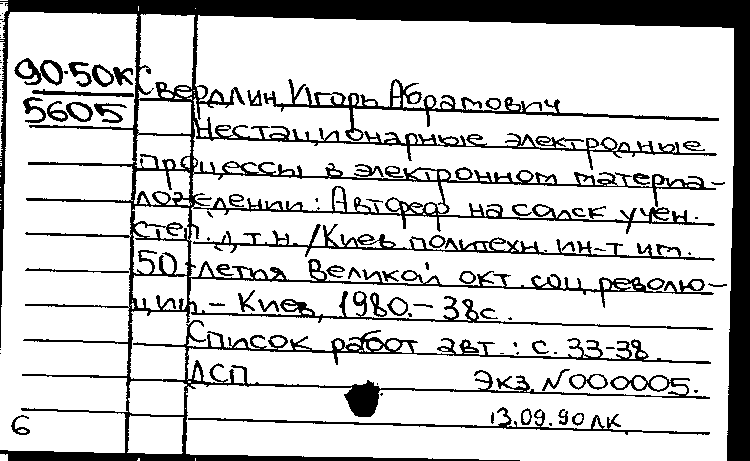 90-50К Свердлин, Игорь Абрамович
5605
Нестационарные электродные
процессы в электронном материа-
ловедении: Автореф на соиск учен.
степ. д.т.н. /Киев политехн. ин-т им.
50-летия Великой окт. соц. револю-
ции. – Киев, 1980. – 38с.
Список работ авт.: с. 33-38.
ДСП. Экз. N000005.
13.09.90 ЛК.
6